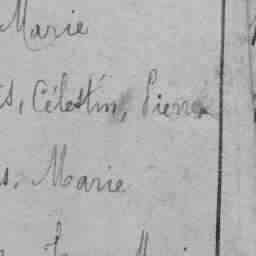 Marie
is, Célestin, Pierre
s, Marie